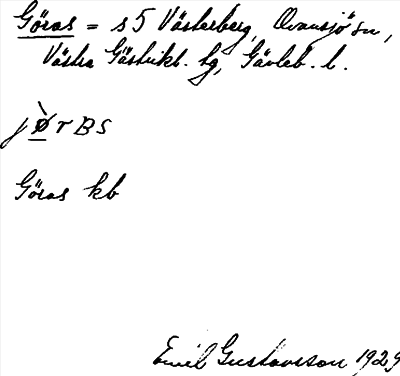 Göras = s 5 Västerberg, Ovansjö sn,
Västra Gästrikl. hg, Gävleb. l.
jø̀rBs
Göras kb
Emil Gustavsson 1929